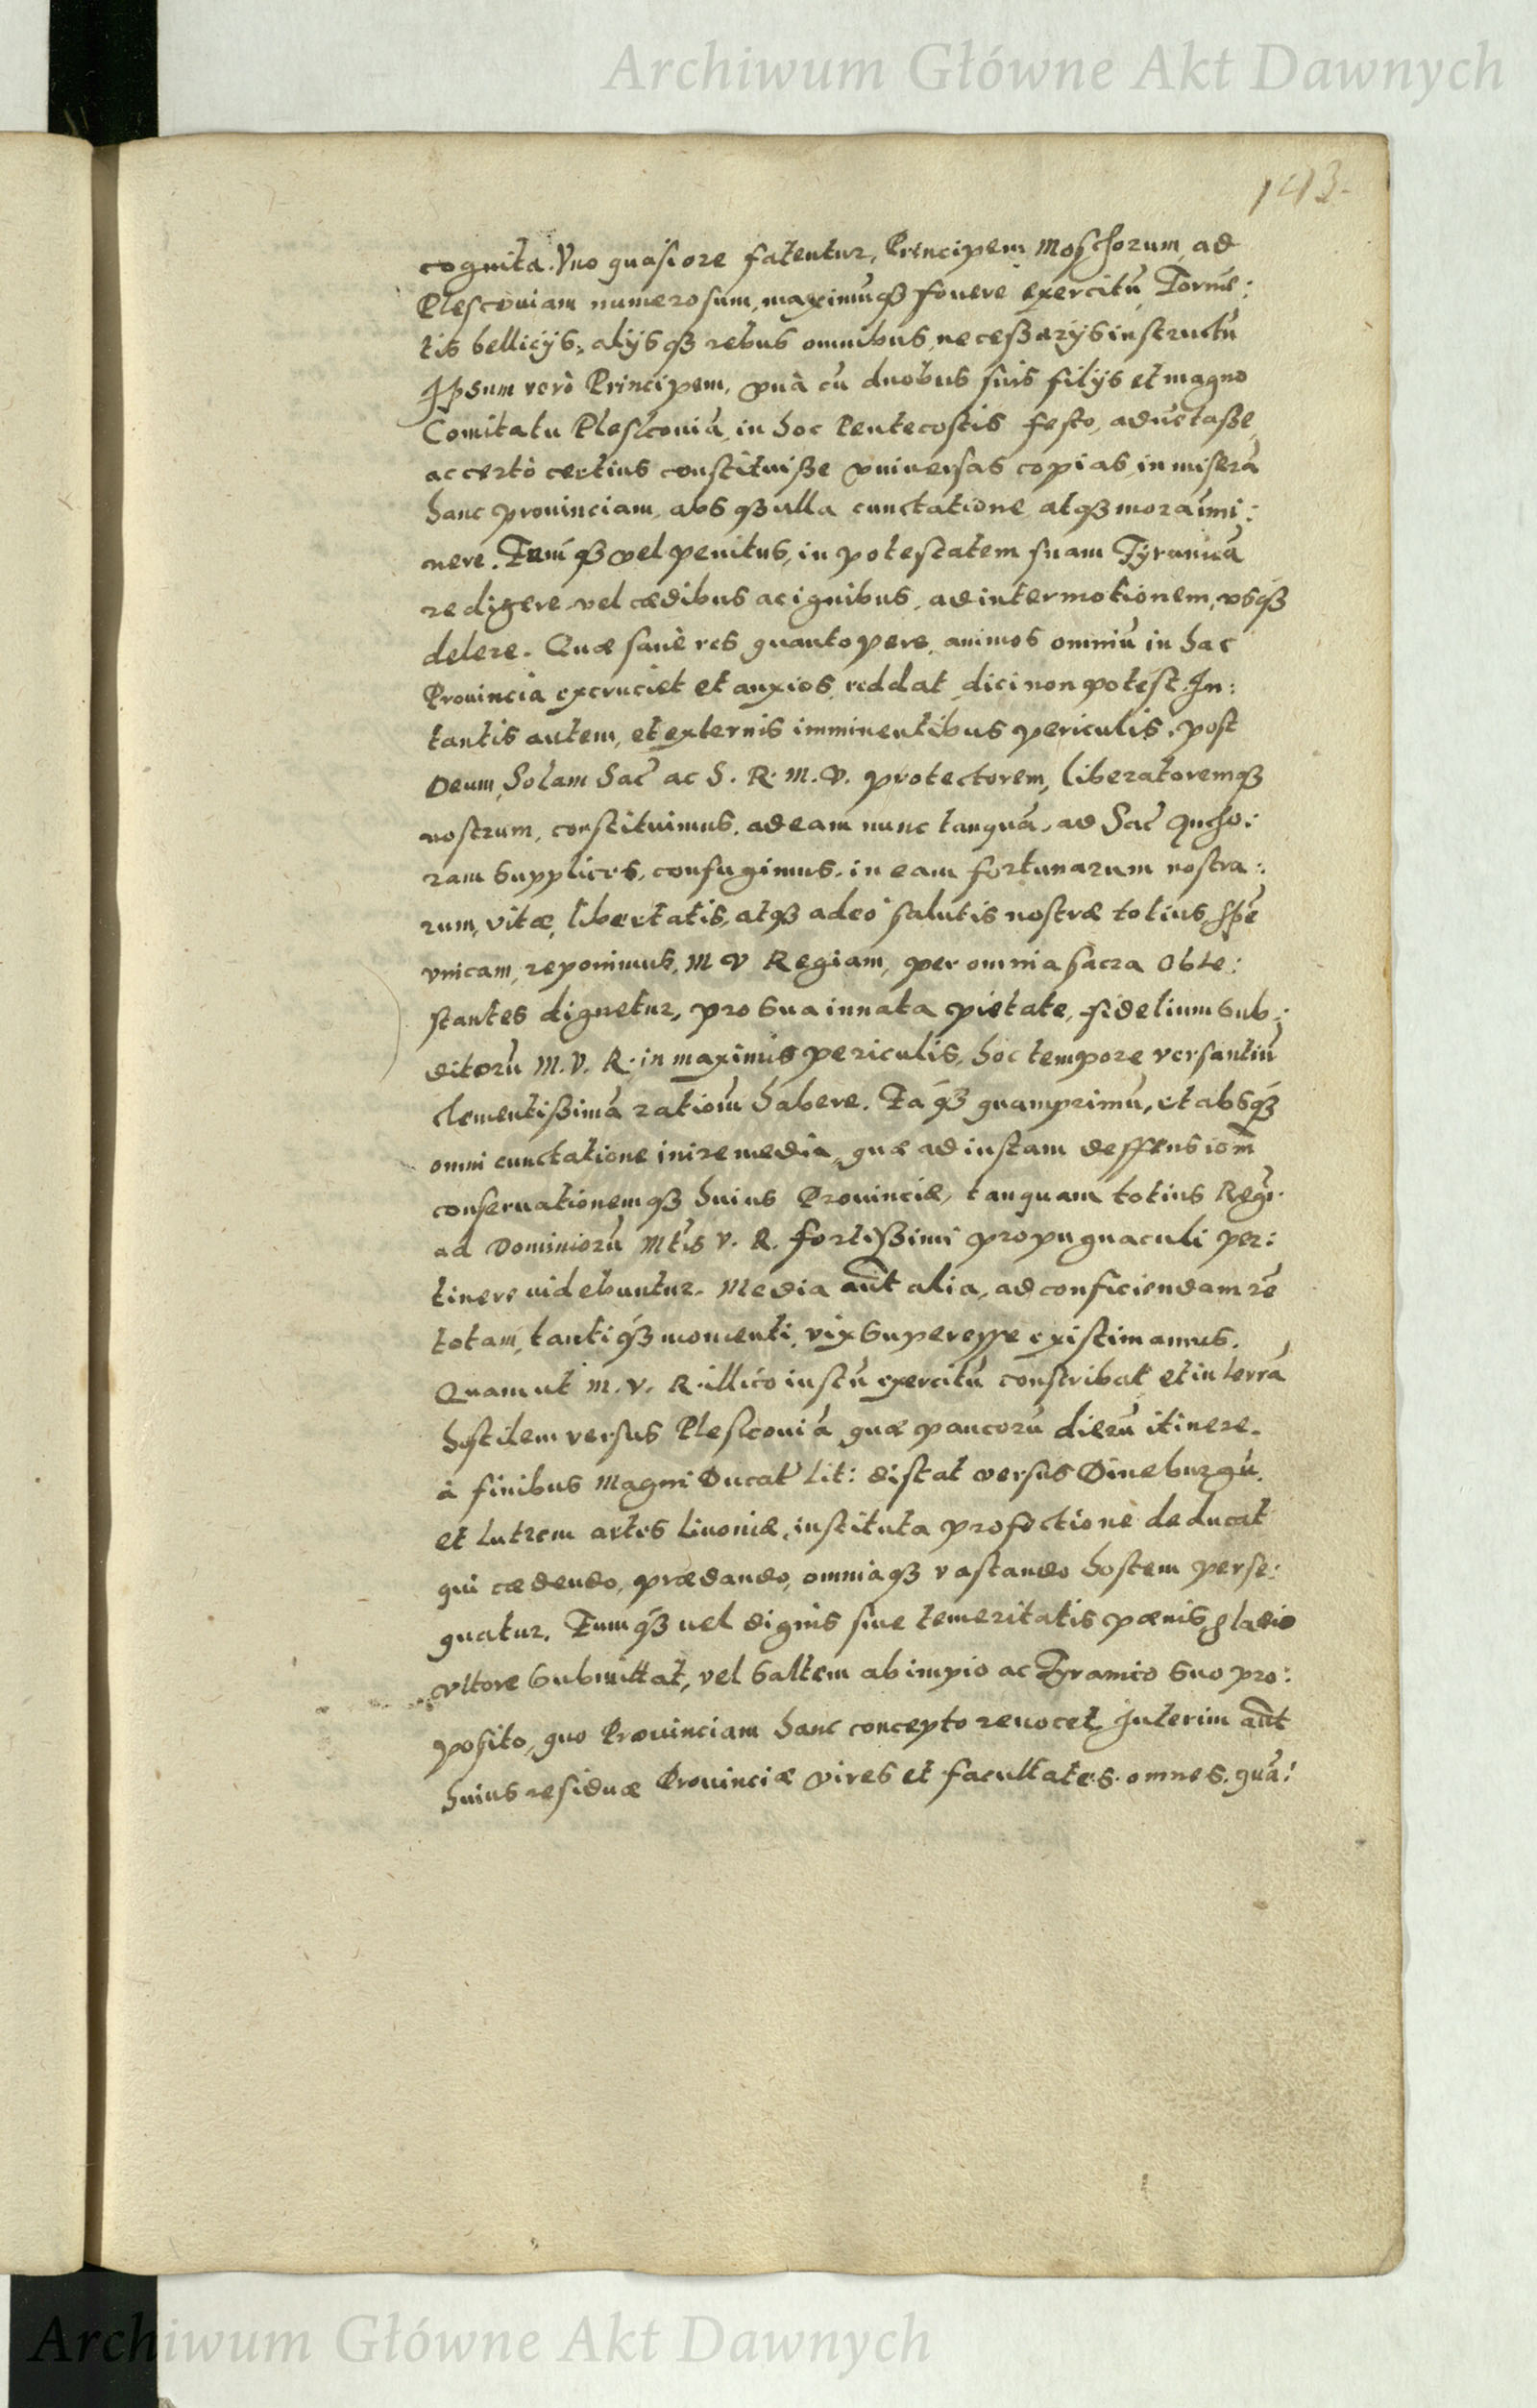 Archiwum Główne Akt Dawnych
143.
cognita. Vno quasi ore fatentur, Principem Moschorum, ad
Plescouiam numerosum, maximuq́ꝫ fouere exercitū, Tormē:
tis bellicÿs, alÿsqꝫ rebus omnibus, necessarÿs instructū
Ipsum verò Principem, vnà cū duobus suis filÿs et magno
Comitatu Plesconiā, in hoc Pentecostis festo, aduētasse,
ac certò certius constituisse vniuersas copias, in miserā
hanc prouinciam, absqꝫ ulla cunctatione, atqꝫ mora imi:
nere. Eamqꝫ vel penitus, in potestatem suam Tÿranicā
redigere vel cædibus ac ignibus, ad internotionem, vsqꝫ
delere. Quæ sanè res quantopere, animos omniū in hac
Prouincia excruciet et anxios, reddat, dici non potest. In:
tantis autem, et externis imminentibus periculis, post
Deum, Solam Sac̄ ac S. R. M. V. protectorem, liberatoremqꝫ
nostrum, constituimus, ad eam nunc tanquā, ad Sac̄ Ancho:
ram supplices, confugimus, in eam fortunarum nostra:
rum, vitæ, libertatis, atqꝫ adeo salutis nostræ totius, spē
vnicam, reponimus, M V Regiam, per omnia sacra obte:
stantes dignetur, pro sua innata pietate, fidelium sub:
ditorū M. V. R. in maximis periculis, hoc tempore versantiū
clementissimā rationē habere. Eáqꝫ quamprimū, et absqꝫ
omni cunctatione inire media, quæ ad iustam deffensionē
conseruationemqꝫ huius Prouinciæ, tanquam totius Regi.
ad Dominiorū Mtis V. R. fortissimi propugnaculi per:
tinere uidebuntur. Media aut̄ alia, ad conficiendam rē
totam, tantiqꝫ momenti, vix superesse existimamus.
Quam ut M. V. R. illico iustū exercitū conscribat et in terrā
hostilem versus Plesconiā quæ paucorū dierū itinere.
à finibus Magni Ducat' Lit: distat versus Dineburgū.
et Lutzem artes Liuoniæ, instituta profectione deducat
qui cædendo, prædando, omniaqꝫ vastando hostem perse:
quatur. Eumqꝫ uel dignis suæ temeritatis pænis, gladio
vltore submittat, vel saltem ab impio ac Tÿranico suo pro:
posito, quo Prouinciam hanc concepto reuocet Interim aut̄
huius residuæ Prouinciæ vires et facultates omnes, quā:
Archiwum Główne Akt Dawnych